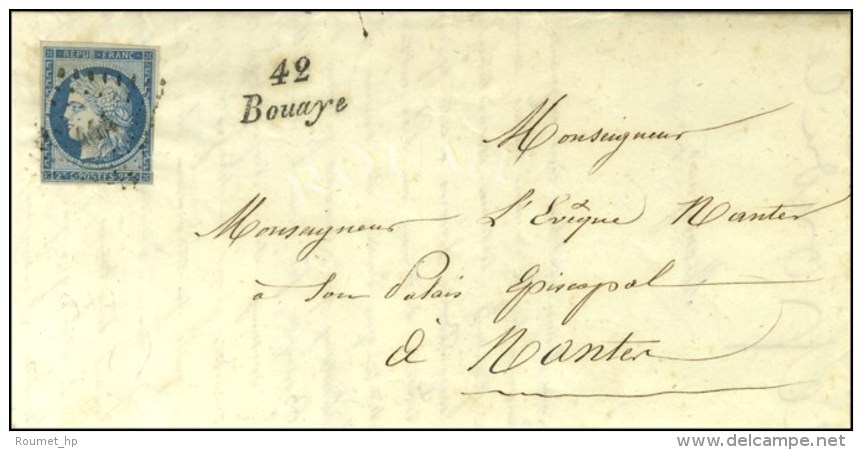 REPUB. FRANC.
42
Bouaye
Monseigneur
Monseigneur L'Evêque Nantes
à son Palais Episcopal
à Nantes
Roumet_hp
delcampe.net